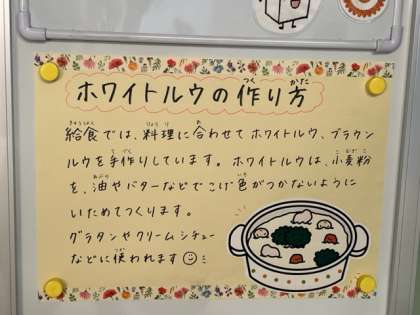 ホワイトルウの作り方
給食では、料理に合わせてホワイトルウ、ブラウン
ルウを手作りしています。ホワイトルウは、小麦粉
を、油やバターなどでこげ色がつかないように
いためてつくります。
グラタンやクリームシチュー
などに使われます